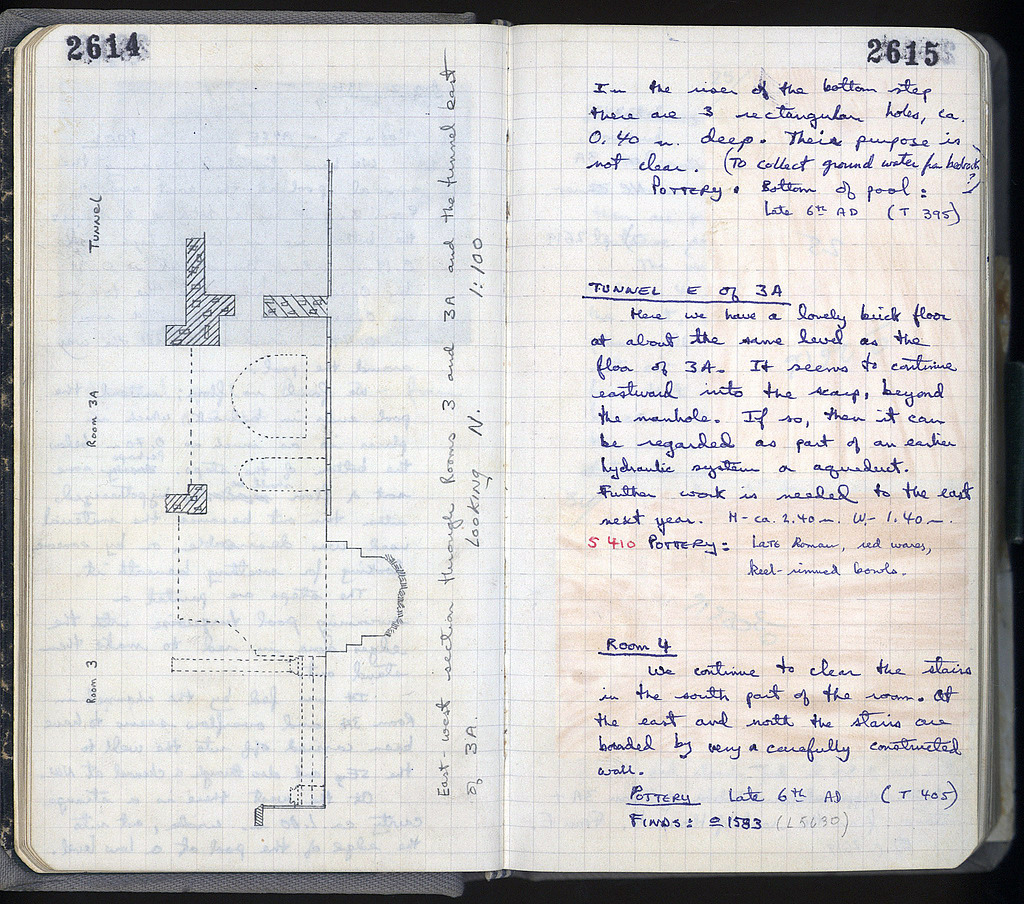 2614
TUNNEL
Room 3A
Room 3
East-west section through Rooms 3 and 3A and the tunnel east
of 3A. LOOKING N. 1:100
2615
In the riser of the bottom step
there are 3 rectangular holes, ca.
0.40 m. deep. Their purpose is
not clear. (To collect ground water from bedrock?)
POTTERY: Bottom of pool:
Late 6th AD (T 395)
TUNNEL E of 3A
Here we have a lovely brick floor
at about the same level as the
floor of 3A. It seems to continue
eastward into the scarp, beyond
the manhole. If so, then it can
be regarded as part of an earlier
hydraulic system or aqueduct.
Further work is needed to the east
next year. H- ca. 2.40 m. W- 1.40 m.
S 410 POTTERY: Late Roman, red wares,
keel-rimmed bowls.
Room 4
We continue to clear the stairs
in the south part of the room. At
the east and north the stairs are
bonded by very a carefully constructed
wall.
POTTERY Late 6th AD (T 405)
FINDS: 1583 (L5630)